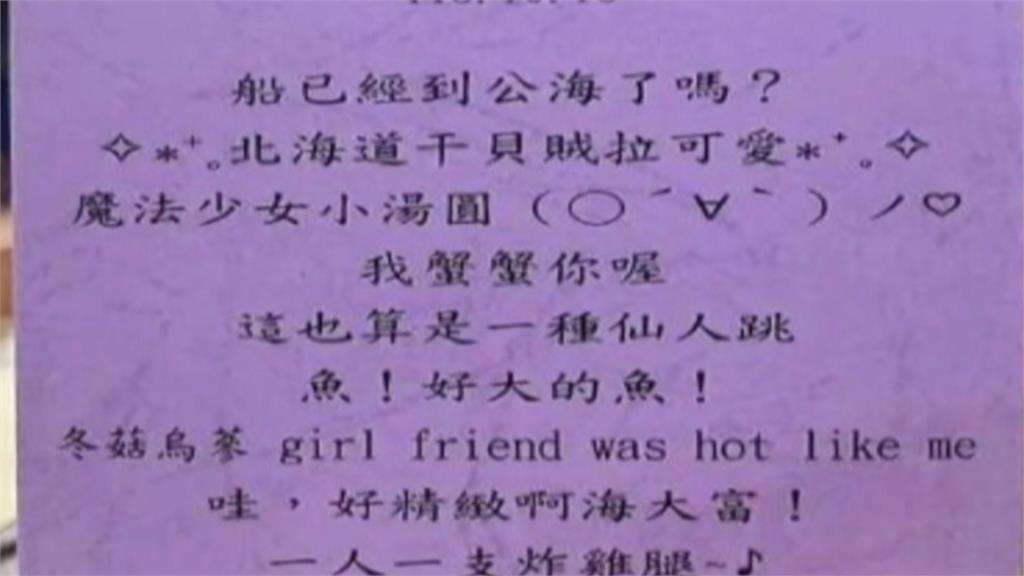 船已經到公海了嗎？
✧*⁺。北海道干貝賊拉可愛*⁺。✧
魔法少女小湯圓（◯ˊ∀ˋ）ノ♡
我蟹蟹你喔
這也算是一種仙人跳
魚！好大的魚！
冬菇烏蔘 girl friend was hot like me
哇，好精緻啊海大富！
一人一支炸雞腿~♪